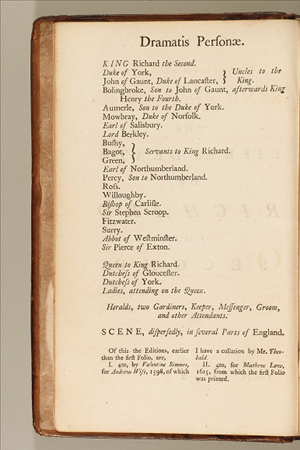 Dramatis Personæ.
KING Richard the Second.
Duke of York,
John of Gaunt, Duke of Lancaster, } Uncles to the King.
Bolingbroke, Son to John of Gaunt, afterwards King
Henry the Fourth.
Aumerle, Son to the Duke of York.
Mowbray, Duke of Norfolk.
Earl of Salisbury.
Lord Berkley.
Bushy,
Bagot, } Servants to King Richard.
Green,
Earl of Northumberland.
Percy, Son to Northumberland.
Ross.
Willoughby.
Bishop of Carlisle.
Sir Stephen Scroop.
Fitzwater.
Surry.
Abbot of Westminster.
Sir Pierce of Exton.
Queen to King Richard.
Dutchess of Gloucester.
Dutchess of York.
Ladies, attending on the Queen.
Heralds, two Gardiners, Keeper, Messenger, Groom,
and other Attendants.
SCENE, dispersedly, in several Parts of England.
Of this the Editions, earlier
than the first Folio, are,
I. 4to, by Valentine Simmes,
for Andrew Wise, 1598, of which
I have a collation by Mr. Theo-
bald.
II. 4to, for Mathew Law,
1615, from which the first Folio
was printed.